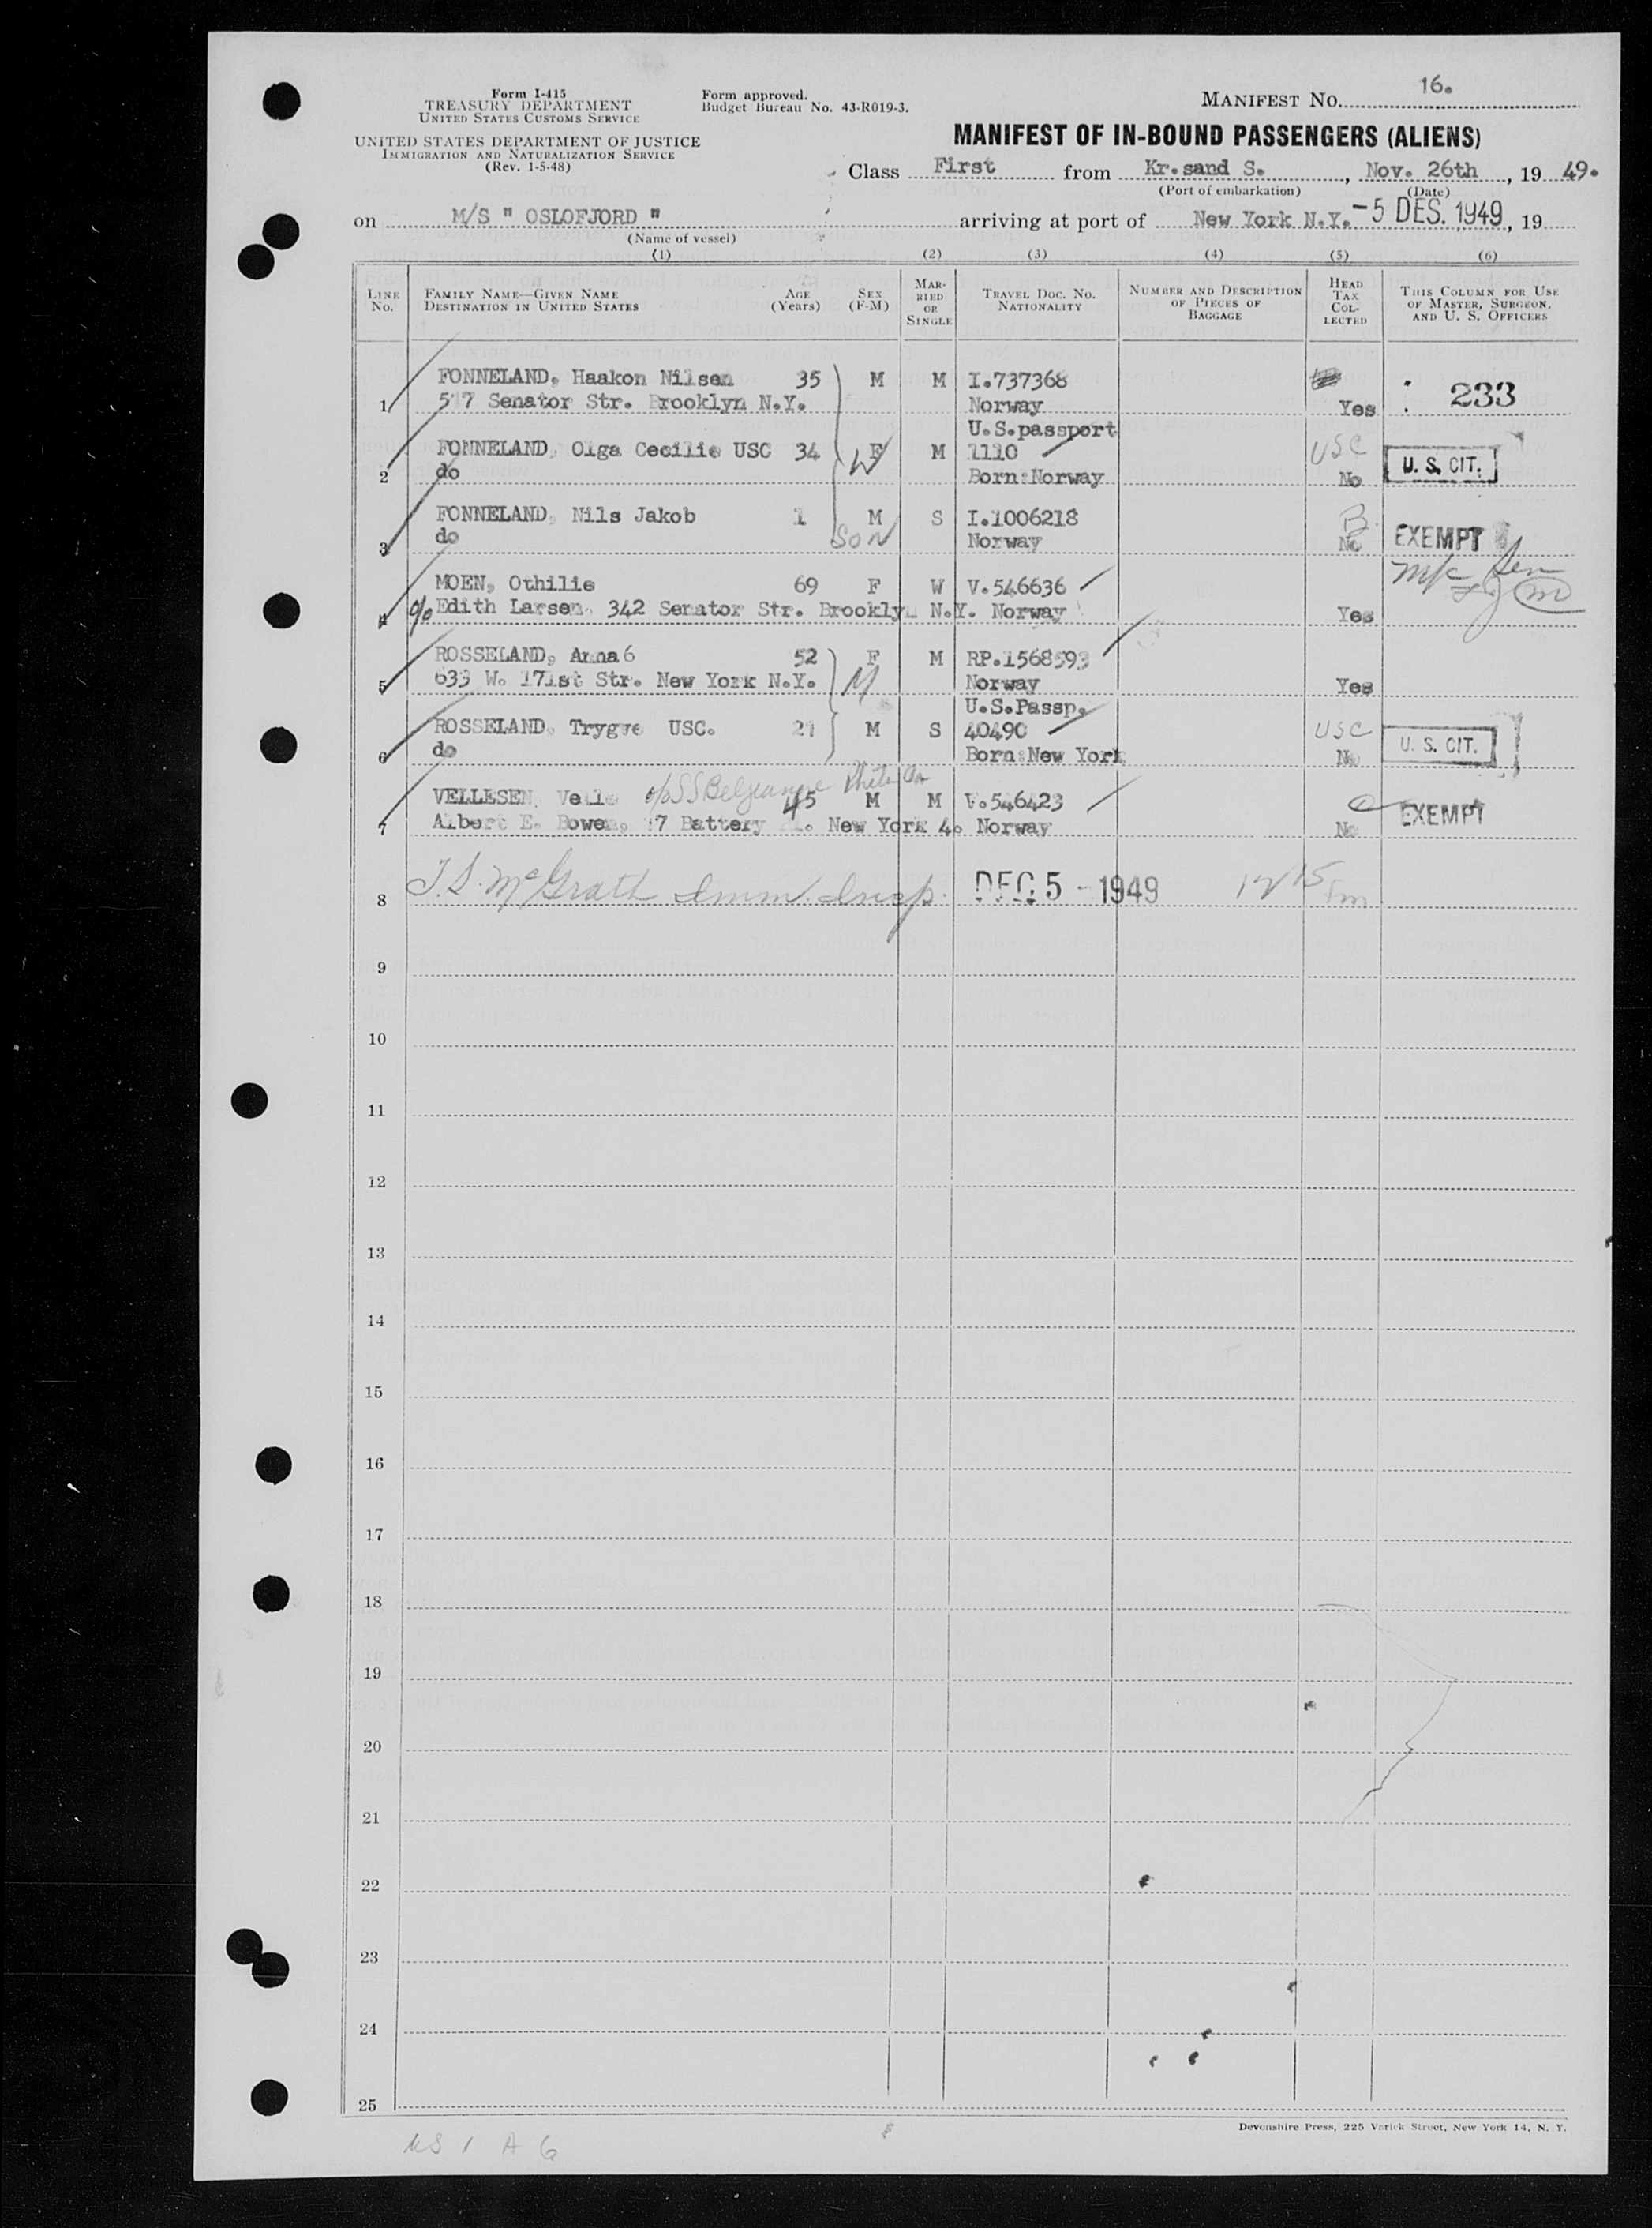 Form I-415
TREASURY DEPARTMENT
UNITED STATES CUSTOMS SERVICE
UNITED STATES DEPARTMENT OF JUSTICE
IMMIGRATION AND NATURALIZATION SERVICE
(Rev. 1-5-48)
Form approved.
Budget Bureau No. 43-R019-3.
MANIFEST NO. 16.
MANIFEST OF IN-BOUND PASSENGERS (ALIENS)
Class First from Kr.sand S., Nov. 26th, 19 49.
(Port of embarkation) (Date)
on M/S " OSLOFJORD " arriving at port of New York N.Y. -5 DES. 1949, 19
(Name of vessel)
(1) (2) (3) (4) (5) (6)
LINE NO. FAMILY NAME—GIVEN NAME DESTINATION IN UNITED STATES AGE (Years) SEX (F-M) MARRIED OR SINGLE TRAVEL DOC. NO. NATIONALITY NUMBER AND DESCRIPTION OF PIECES OF BAGGAGE HEAD TAX COLLECTED THIS COLUMN FOR USE OF MASTER, SURGEON, AND U. S. OFFICERS
FONNELAND, Haakon Nilsen 35 M M I.737368 233
1 517 Senator Str. Brooklyn N.Y. Norway Yes
U.S.passport
FONNELAND, Olga Cecilie USC 34 F W M 1110 USC U. S. CIT.
2 do Born:Norway No
FONNELAND, Nils Jakob 1 M S I.1006218 EXEMPT
3 do Son Norway No
MOEN, Othilie 69 F W V.546636
4 c/o Edith Larsen, 342 Senator Str. Brooklyn N.Y. Norway Yes
ROSSELAND, Anna 6 52 F M RP.1568593
5 633 W. 171st Str. New York N.Y. M Norway Yes
U.S.Passp.
ROSSELAND, Trygve USC. 21 M S 40490 USC U. S. CIT.
6 do Born:New York No
c/o SS
VELLESEN, 45 M M V.546423 EXEMPT
7 Albert E. Bowen, 17 Battery New York 4. Norway No
8 T.S. McGrath Imm. Insp. DEC 5 - 1949 12 15 Pm
9
10
11
12
13
14
15
16
17
18
19
20
21
22
23
24
25
Devonshire Press, 225 Varick Street, New York 14, N. Y.